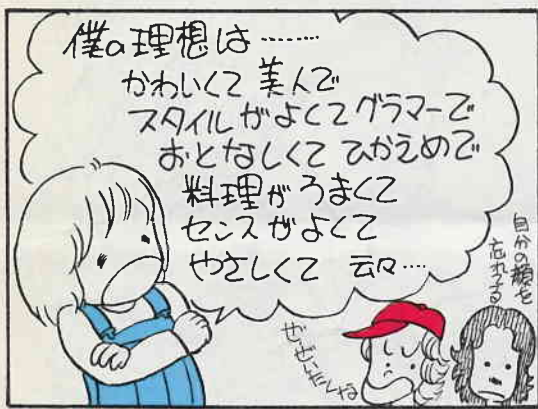 僕の理想は………
かわいくて 美人で
スタイルがよくてグラマーで
おとなしくて ひかえめで
料理がうまくて
センスがよくて
やさしくて 云々…
自分の顔を
忘れてる